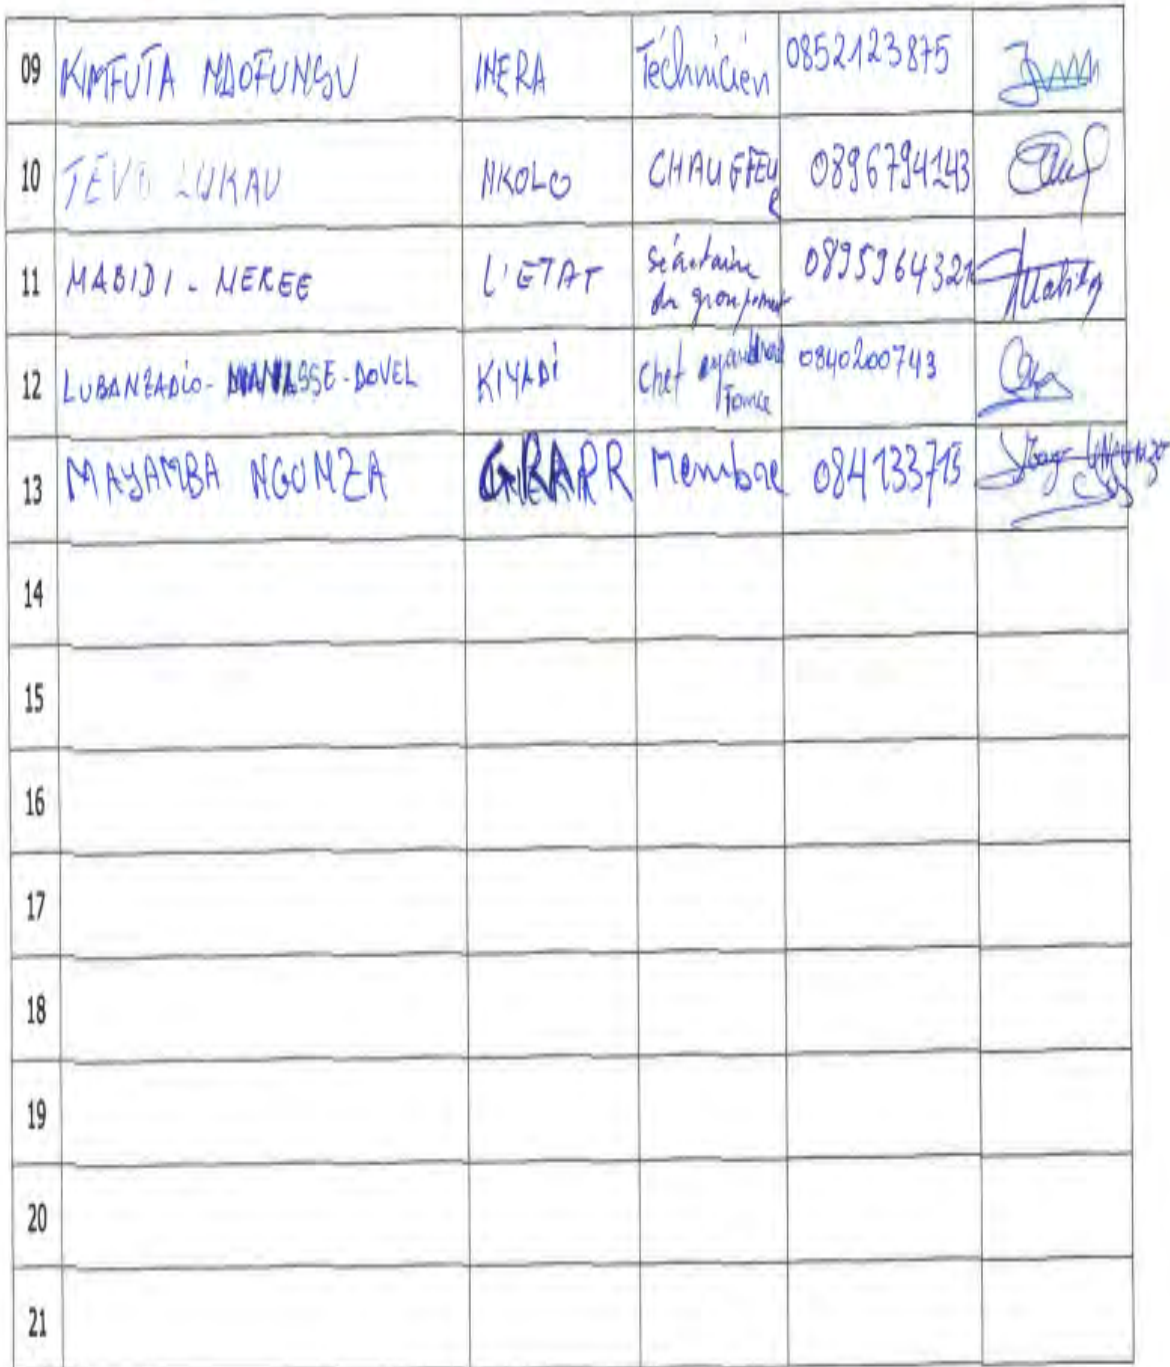 09 KIMFUTA NDOFUNSU INERA Téchnicien 0852123875
10 TEVO LUKAU NKOLO CHAUFFEUR 0896794143
11 MABIDI - NEREE L'ETAT Sécretaire du groupement 0895964321
12 LUBANZADIO- MANASSE-DOVEL KIYADI Chef 0840200743
13 MAYAMBA NGUNZA GRAPR Membre 084133715
14
15
16
17
18
19
20
21